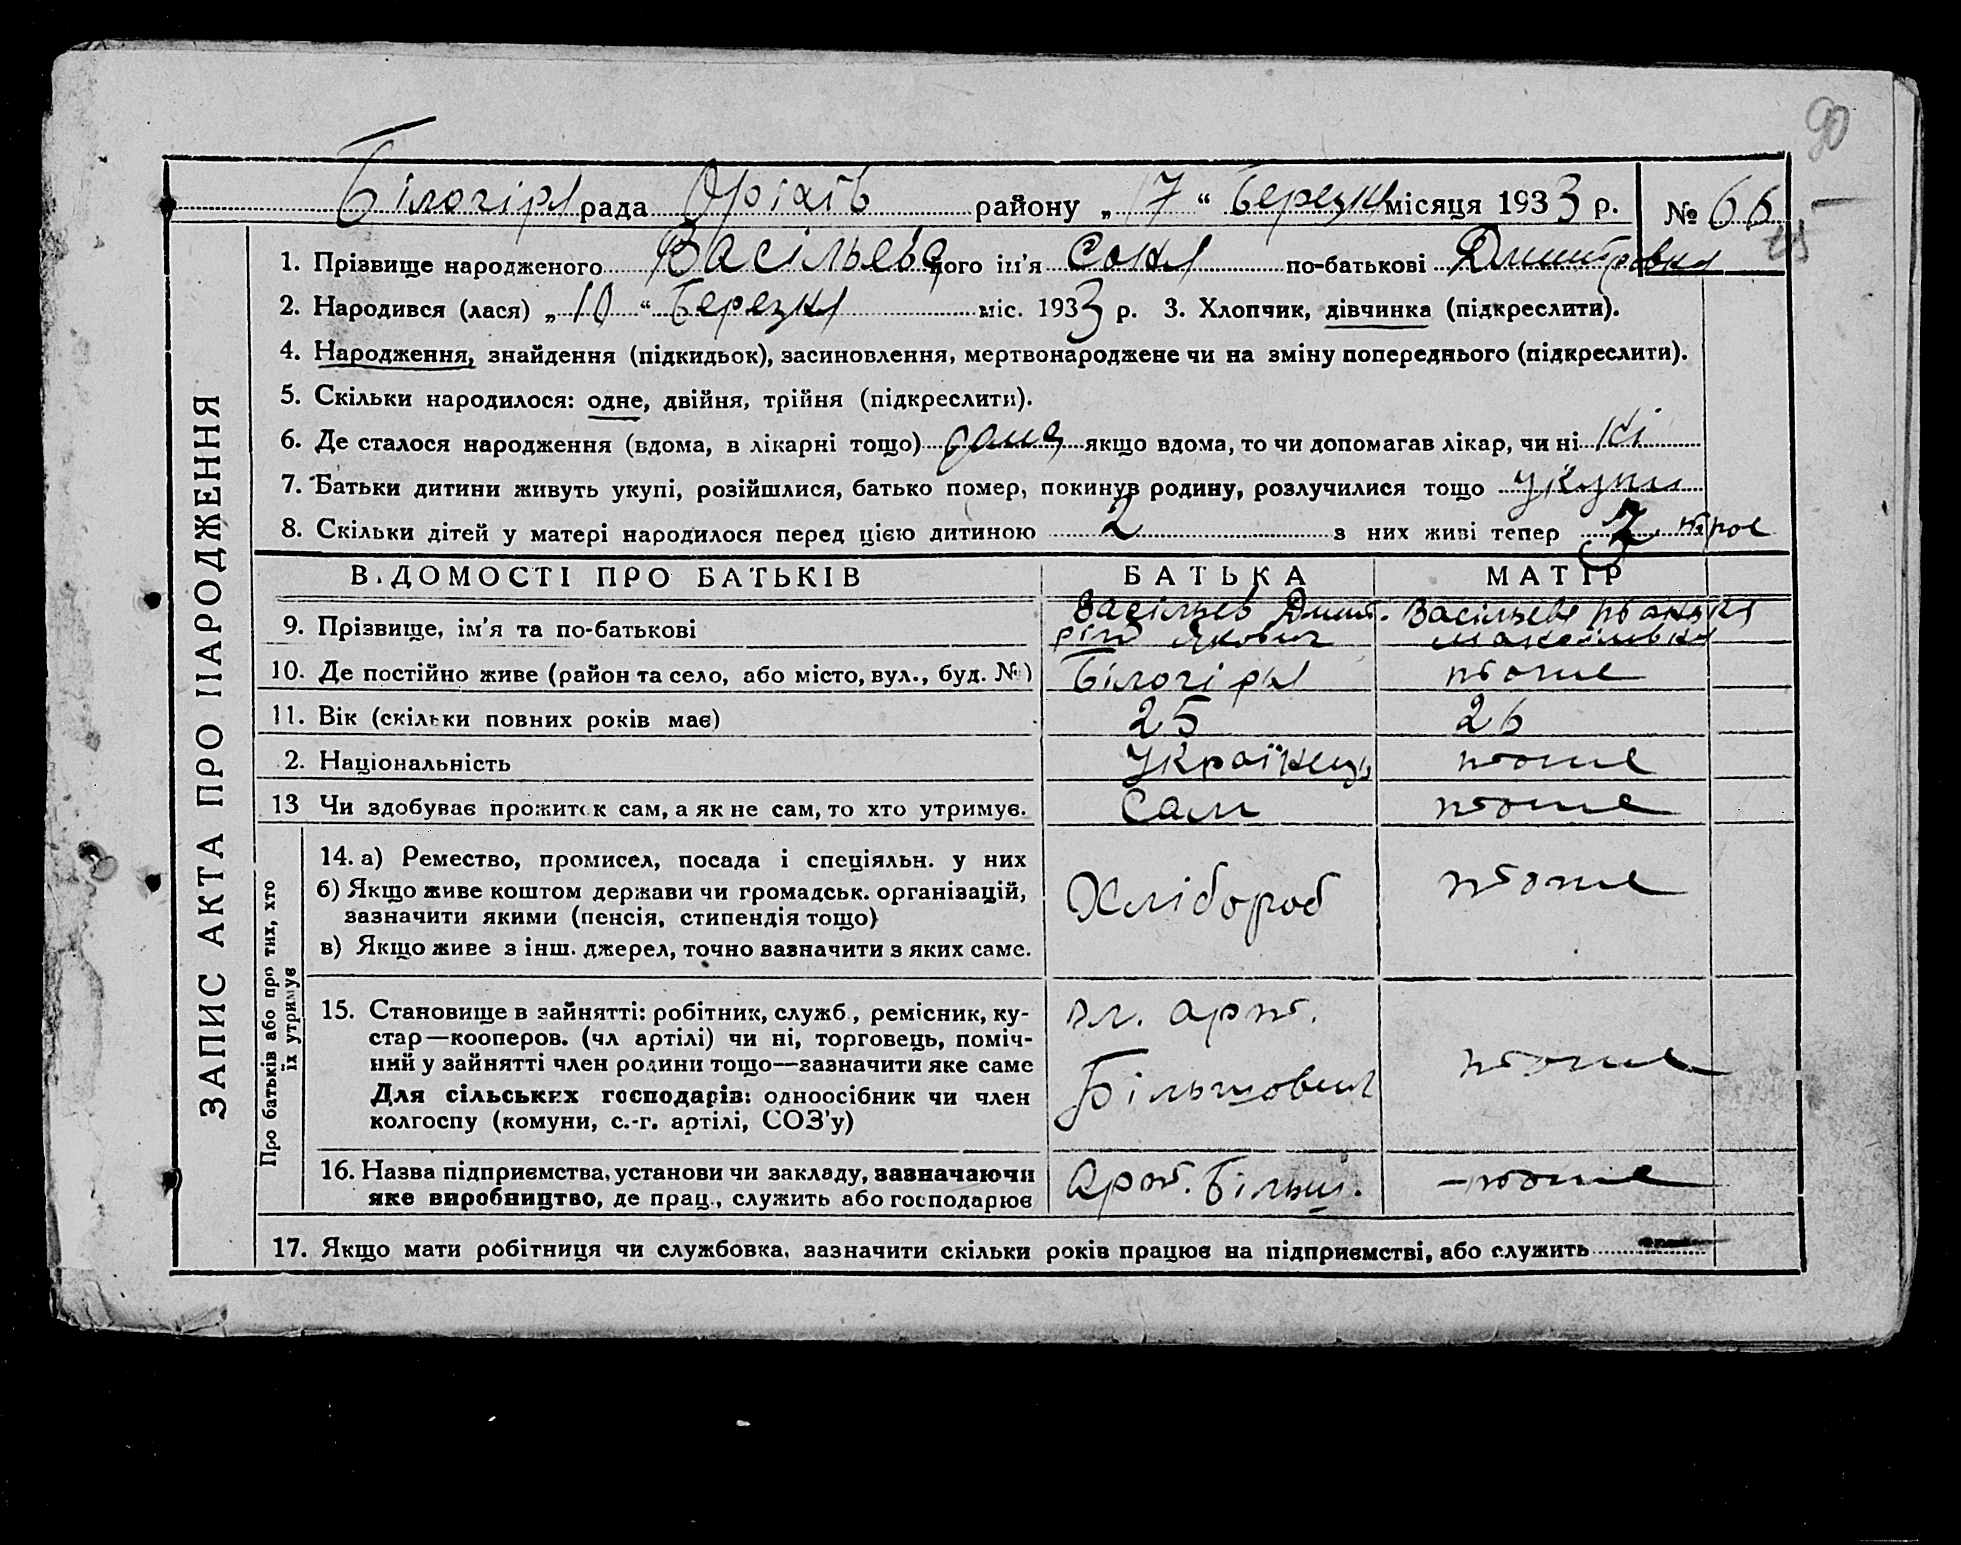 90
Білогіря рада Оріхів району „17“ березня місяця 1933 р. № 66
1. Прізвище народженого Васільєва його ім'я Соня по-батькові Дмитровня
2. Народився (лася) „10“ березня міс. 1933 р. 3. Хлопчик, дівчинка (підкреслити).
4. Народження, знайдення (підкидьок), засиновлення, мертвонароджене чи на зміну попереднього (підкреслити).
5. Скільки народилося: одне, двійня, трійня (підкреслити).
6. Де сталося народження (вдома, в лікарні тощо) дома якщо вдома, то чи допомагав лікар, чи ні ні
7. Батьки дитини живуть укупі, розійшлися, батько помер, покинув родину, розлучилися тощо укупи
8. Скільки дітей у матері народилося перед цією дитиною 2 з них живі тепер 3 трое
ЗАПИС АКТА ПРО НАРОДЖЕННЯ
ВІДОМОСТІ ПРО БАТЬКІВ БАТЬКА МАТІР
9. Прізвище, ім'я та по-батькові Васільев Дмит- Васільева
рій Якович
10. Де постійно живе (район та село, або місто, вул., буд. №) Білогіря тоже
11. Вік (скільки повних років має) 25 26
2. Національність Українець тоже
13 Чи здобуває прожиток сам, а як не сам, то хто утримує. Сам тоже
Про батьків або про тих, хто їх утримує
14. а) Ремество, промисел, посада і спеціяльн. у них Хлібороб тоже
б) Якщо живе коштом держави чи громадськ. організацій,
зазначити якими (пенсія, стипендія тощо)
в) Якщо живе з інш. джерел, точно зазначити з яких саме.
15. Становище в зайнятті: робітник, служб., ремісник, ку- чл. арт.
стар—кооперов. (чл артілі) чи ні, торговець, поміч-
ний у зайнятті член родини тощо—зазначити яке саме тоже
Для сільських господарів: одноосібник чи член Більшовик
колгоспу (комуни, с.-г. артілі, СОЗ'у)
16. Назва підприємства, установи чи закладу, зазначаючи Арт. Більш. тоже
яке виробництво, де прац., служить або господарює
17. Якщо мати робітниця чи службовка, зазначити скільки років працює на підприємстві, або служить